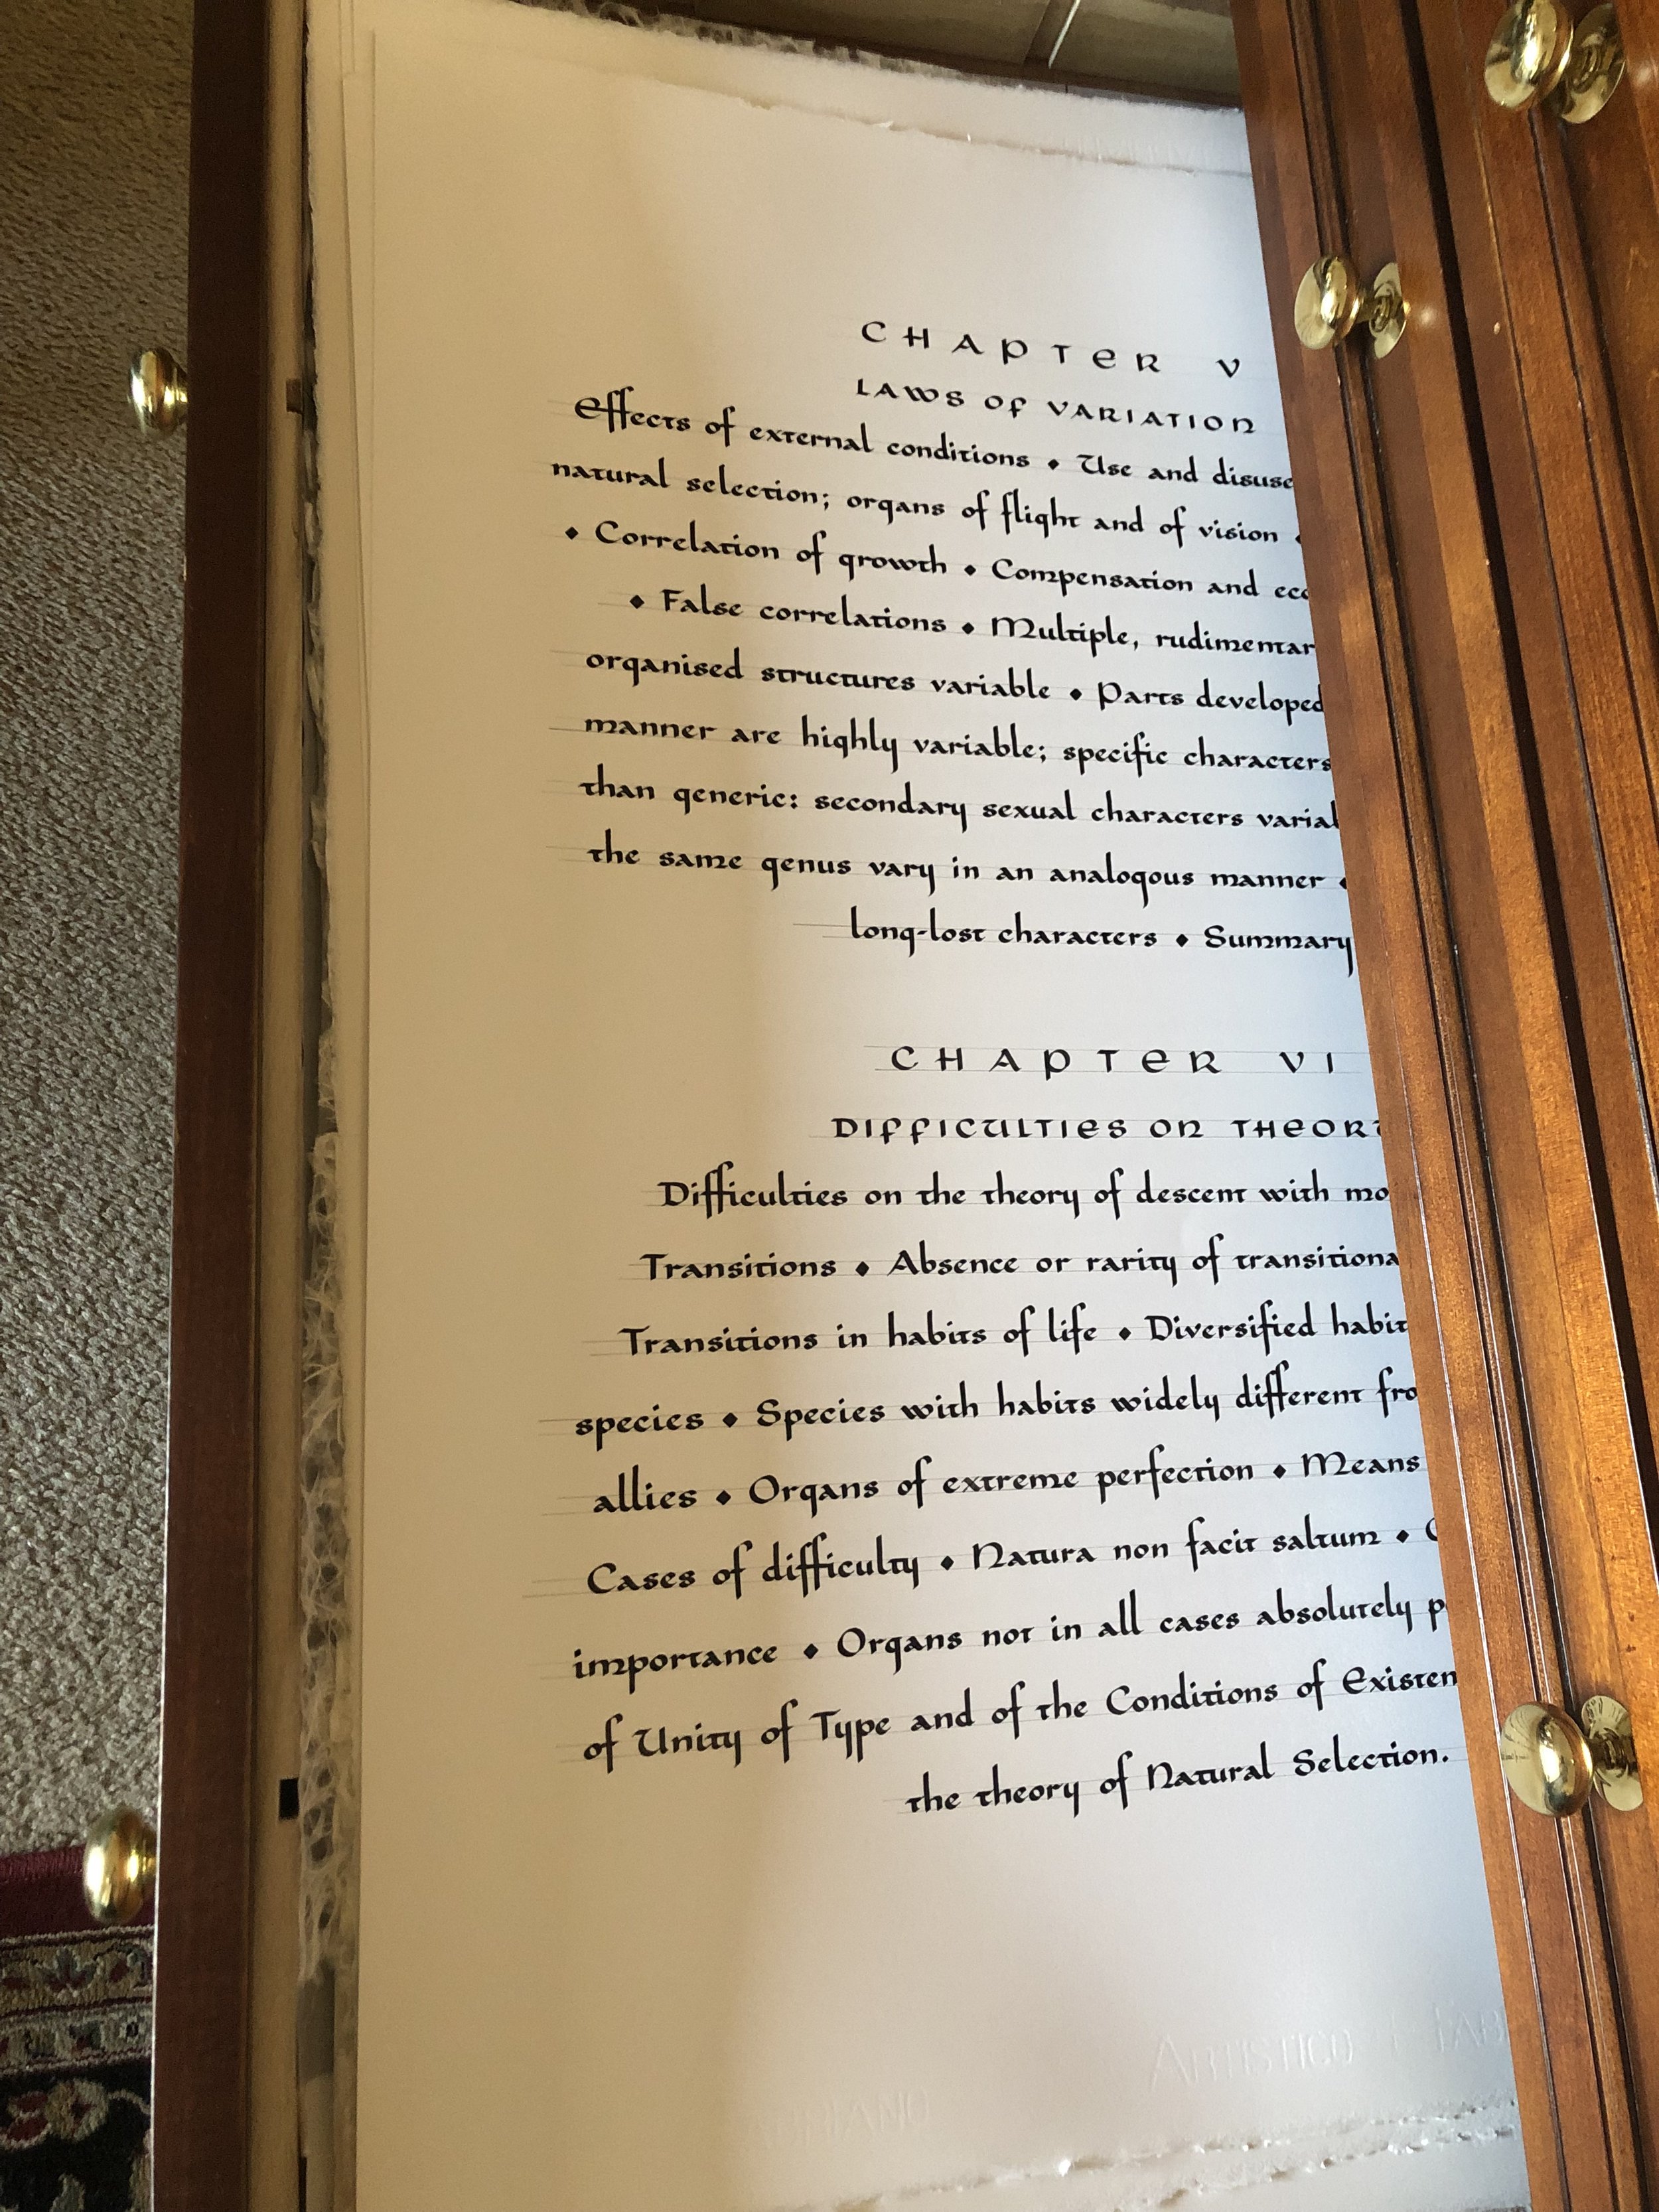 CHAPTER V
LAWS OF VARIATION
Effects of external conditions • Use and disuse
natural selection; organs of flight and of vision •
• Correlation of growth • Compensation and
• False correlations • Multiple,
organised structures variable • Parts developed
manner are highly variable; specific characters
than generic: secondary sexual characters
the same genus vary in an analogous manner •
long-lost characters • Summary
CHAPTER VI
DIFFICULTIES ON THEORY
Difficulties on the theory of descent with
Transitions • Absence or rarity of
Transitions in habits of life • Diversified
species • Species with habits widely different
allies • Organs of extreme perfection • Means
Cases of difficulty • Natura non facit saltum •
importance • Organs not in all cases absolutely
of Unity of Type and of the Conditions of
the theory of Natural Selection.
ARTISTICO